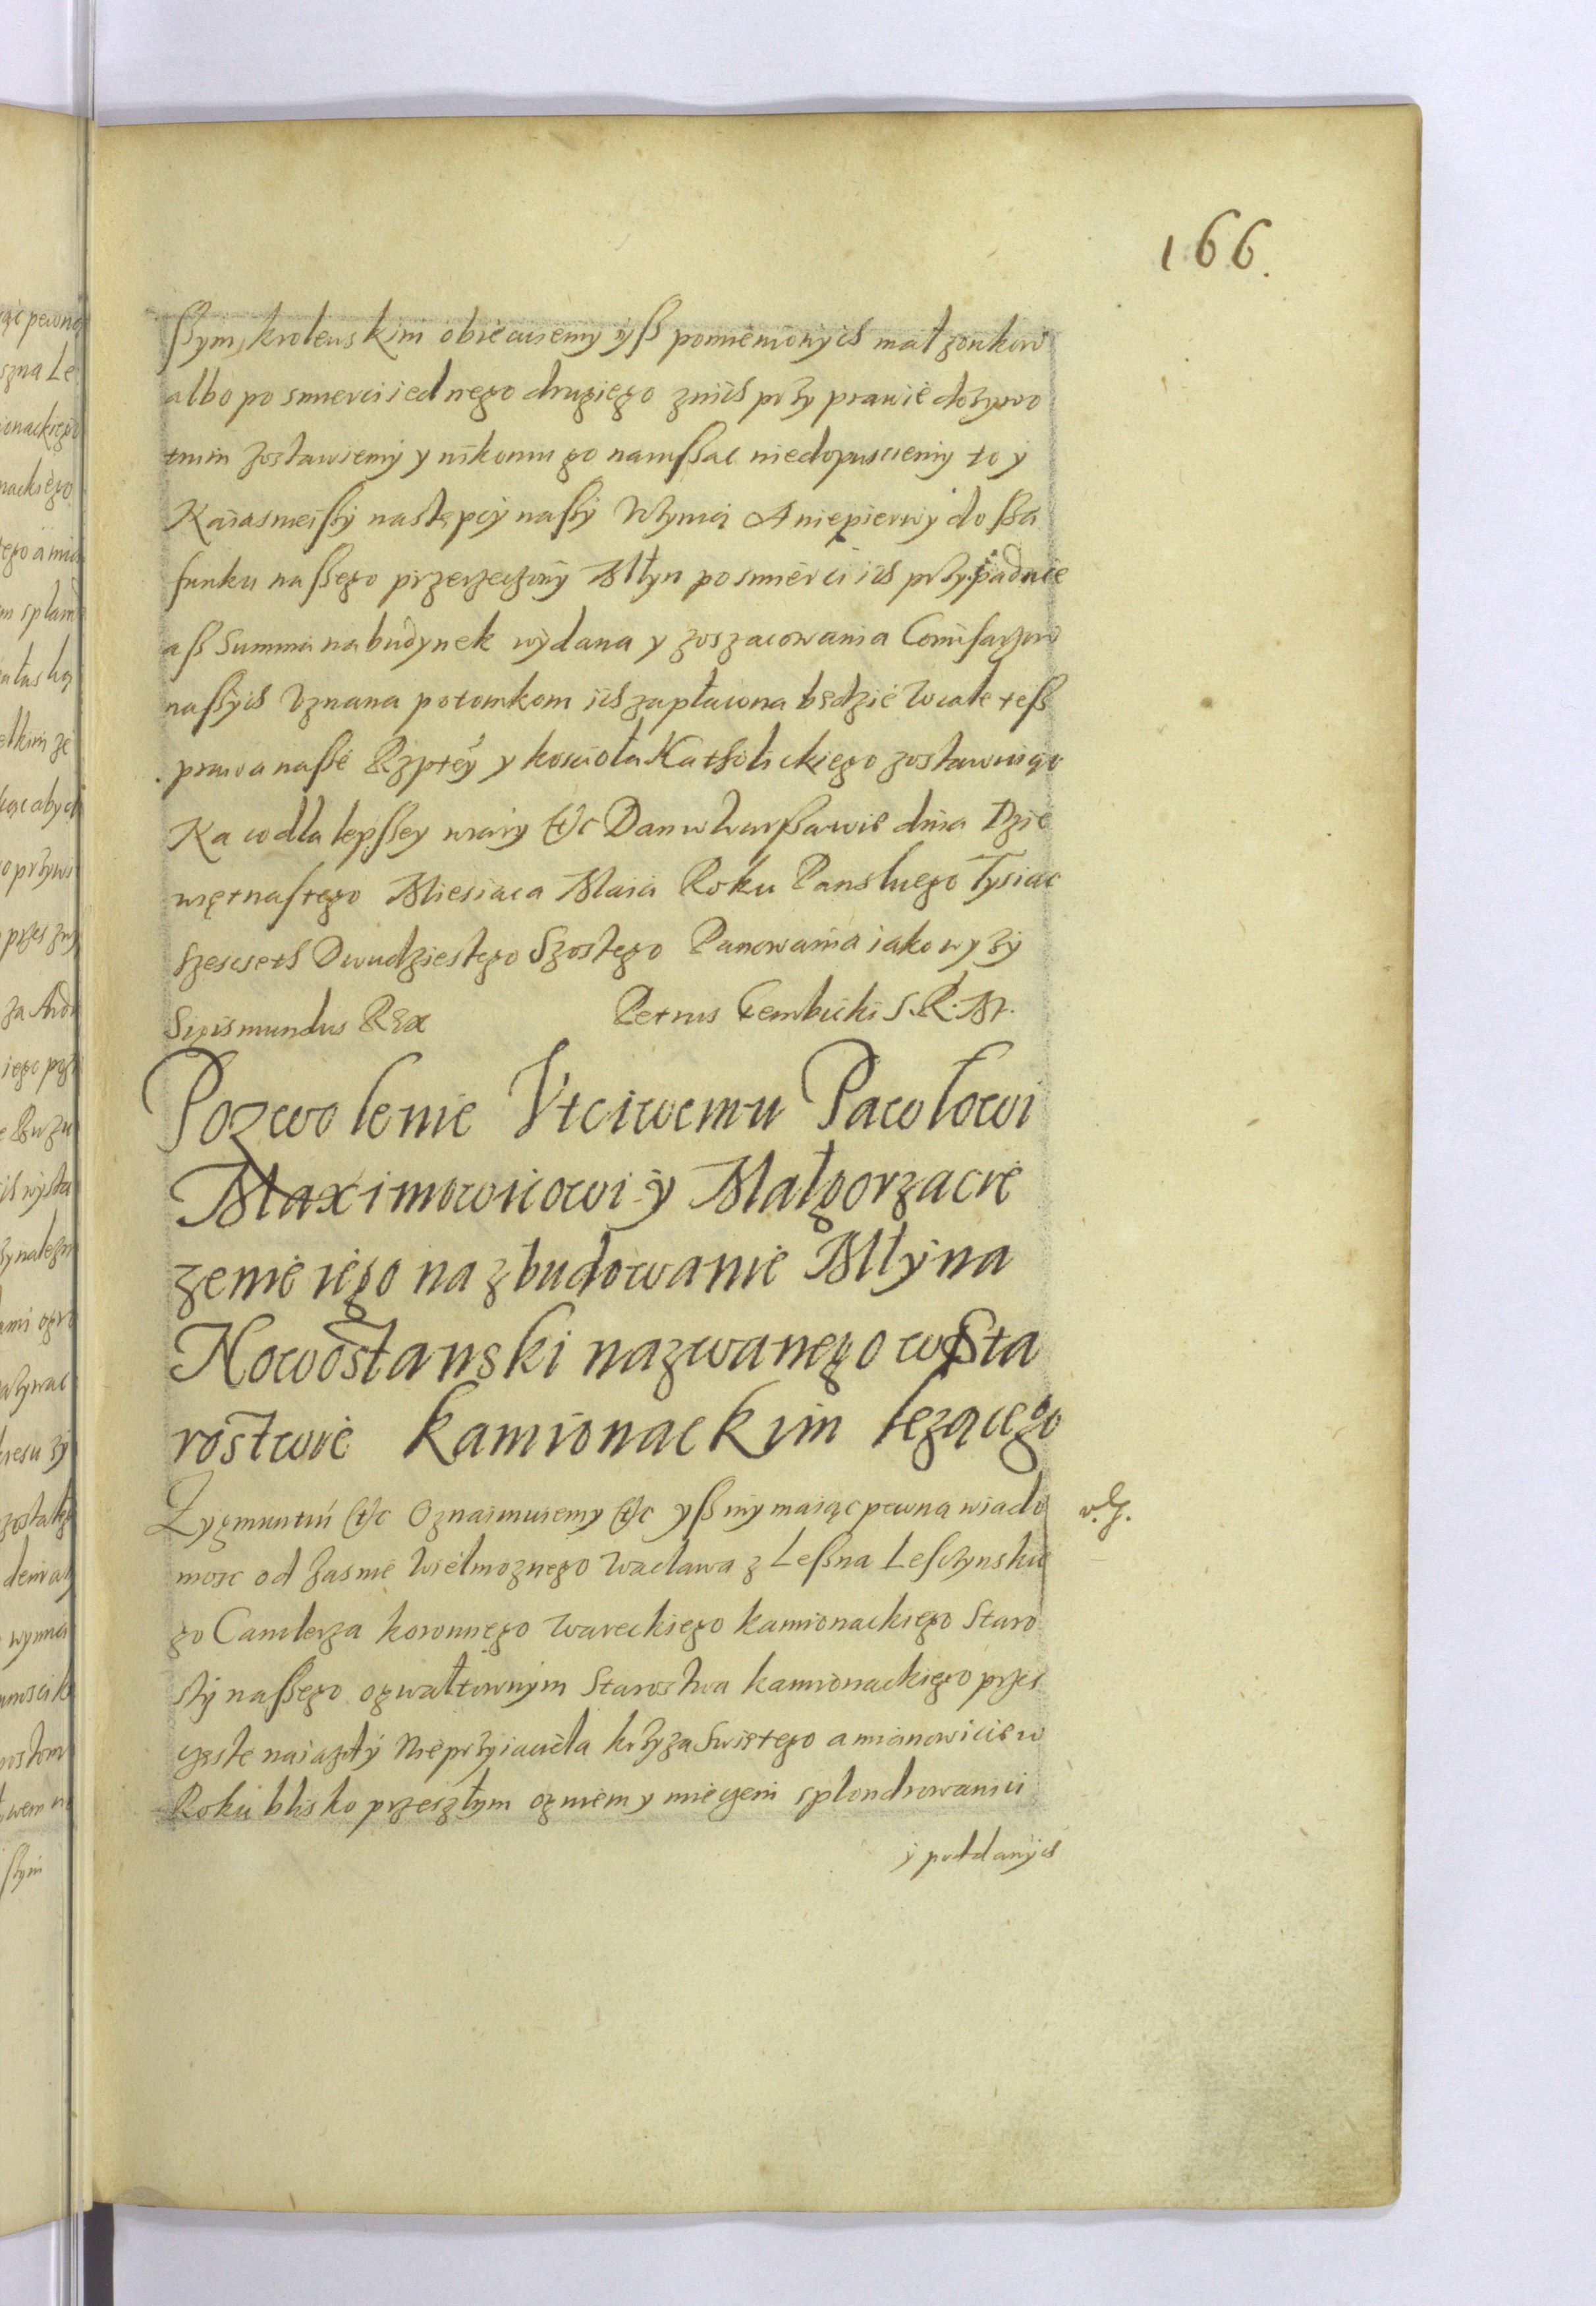 166.
ſſym krolewskim obiecuiemy yſſ pomienionych małzonkow
albo po smierci iednego drugiego znich przy prawie dozywo
tnim zostawiemy y nikomu go naruſſac niedopusciemy to y
Naiasnieiſſy następcy naſſy Vczynią A niepierwy do ſſa
funku naſſego przerzeczony Młyn po smierci ich przypadnie
aſſ Summa na budynek wydana y zoszacowania Comiſarzow
naſſych Vznana potomkom ich zapłacona będzie Wcale teſſ
prawa naſſe Rzptey y koscioła Katholickiego zostawuiąc
Na co dla lepſſey wiary etc Dan w Warſſawie dnia Dzie
więtnaſtego Miesiaca Maia Roku Panskiego Tysiac
Szescseth Dwudziestego Szostego Panowania iako wyzy
Sigismundus REx Petrus Gembicki S. R. M.
Pozwolenie Vtciwemu Pawłowi
Maximowicowi y Małgorzacie
zenie iego na zbudowanie Młyna
Nowostanski nazwanego w Sta
rostwie Kamionackim lezącego
Zygmunt etc Oznaimuiemy etc yſſ my maiąc pewną wiado
mosc od Jasnie Wielmoznego Wacława z Leſſna Leſczynskie
go Canclerza koronnego Wareckiego kamionackiego Staro
sty naſſego ogwałtownym Starostwa kamionackiego przes
częste naiazdy Nieprzyiaciela krzyza Swiętego a mianowicie w
Roku blisko przeszłym ogniem y mieczem splondrowaniu
y poddanych